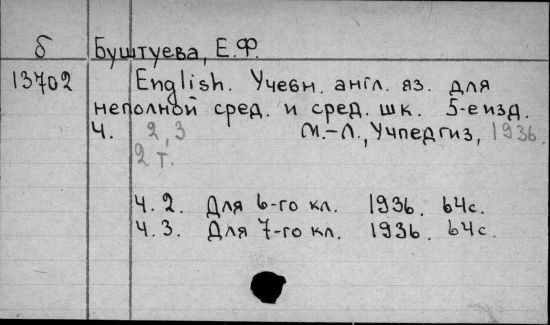 б Буштуева, Е.Ф.
13702 English. Учебн. англ. яз. для
неполной сред. и сред. шк. 5-е изд.
Ч. 2, 3 М.-Л., Учпедгиз, 1936.
2 т.
Ч. 2. Для 6-го кл. 1936. 64с.
Ч. 3. Для 7-го кл. 1936. 64с.